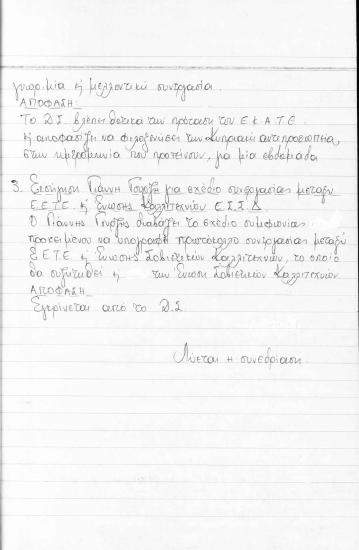 γνωριμία κ' μελλοντική συνεργασία.
ΑΠΟΦΑΣΗ:
Το Δ.Σ. βλέπει θετικά την πρόταση του Ε.Κ.Α.Τ.Ε.
κ' αποφασίζει να φιλοξενήσει την Κυπριακή αντιπροσωπεία,
στην ημερομηνία που προτείνουν, για μία εβδομάδα.
3. Εισήγηση Γιάννη Γουρζή για σχέδιο συνεργασίας μεταξύ
Ε.Ε.Τ.Ε. κ' Ένωσης Καλλιτεχνών Ε.Σ.Σ.Δ.
Ο Γιάννης Γουρζής διαβάζει το σχέδιο συμφωνίας
προκειμένου να υπογραφεί πρωτόκολλο συνεργασίας μεταξύ
Ε.Ε.Τ.Ε κ' Ένωσης Σοβιετικών Καλλιτεχνών, το οποίο
θα συζητηθεί κ' την Ένωση Σοβιετικών Καλλιτεχνών
ΑΠΟΦΑΣΗ:
Εγκρίνεται από το Δ.Σ
Λύεται η συνεδρίαση.